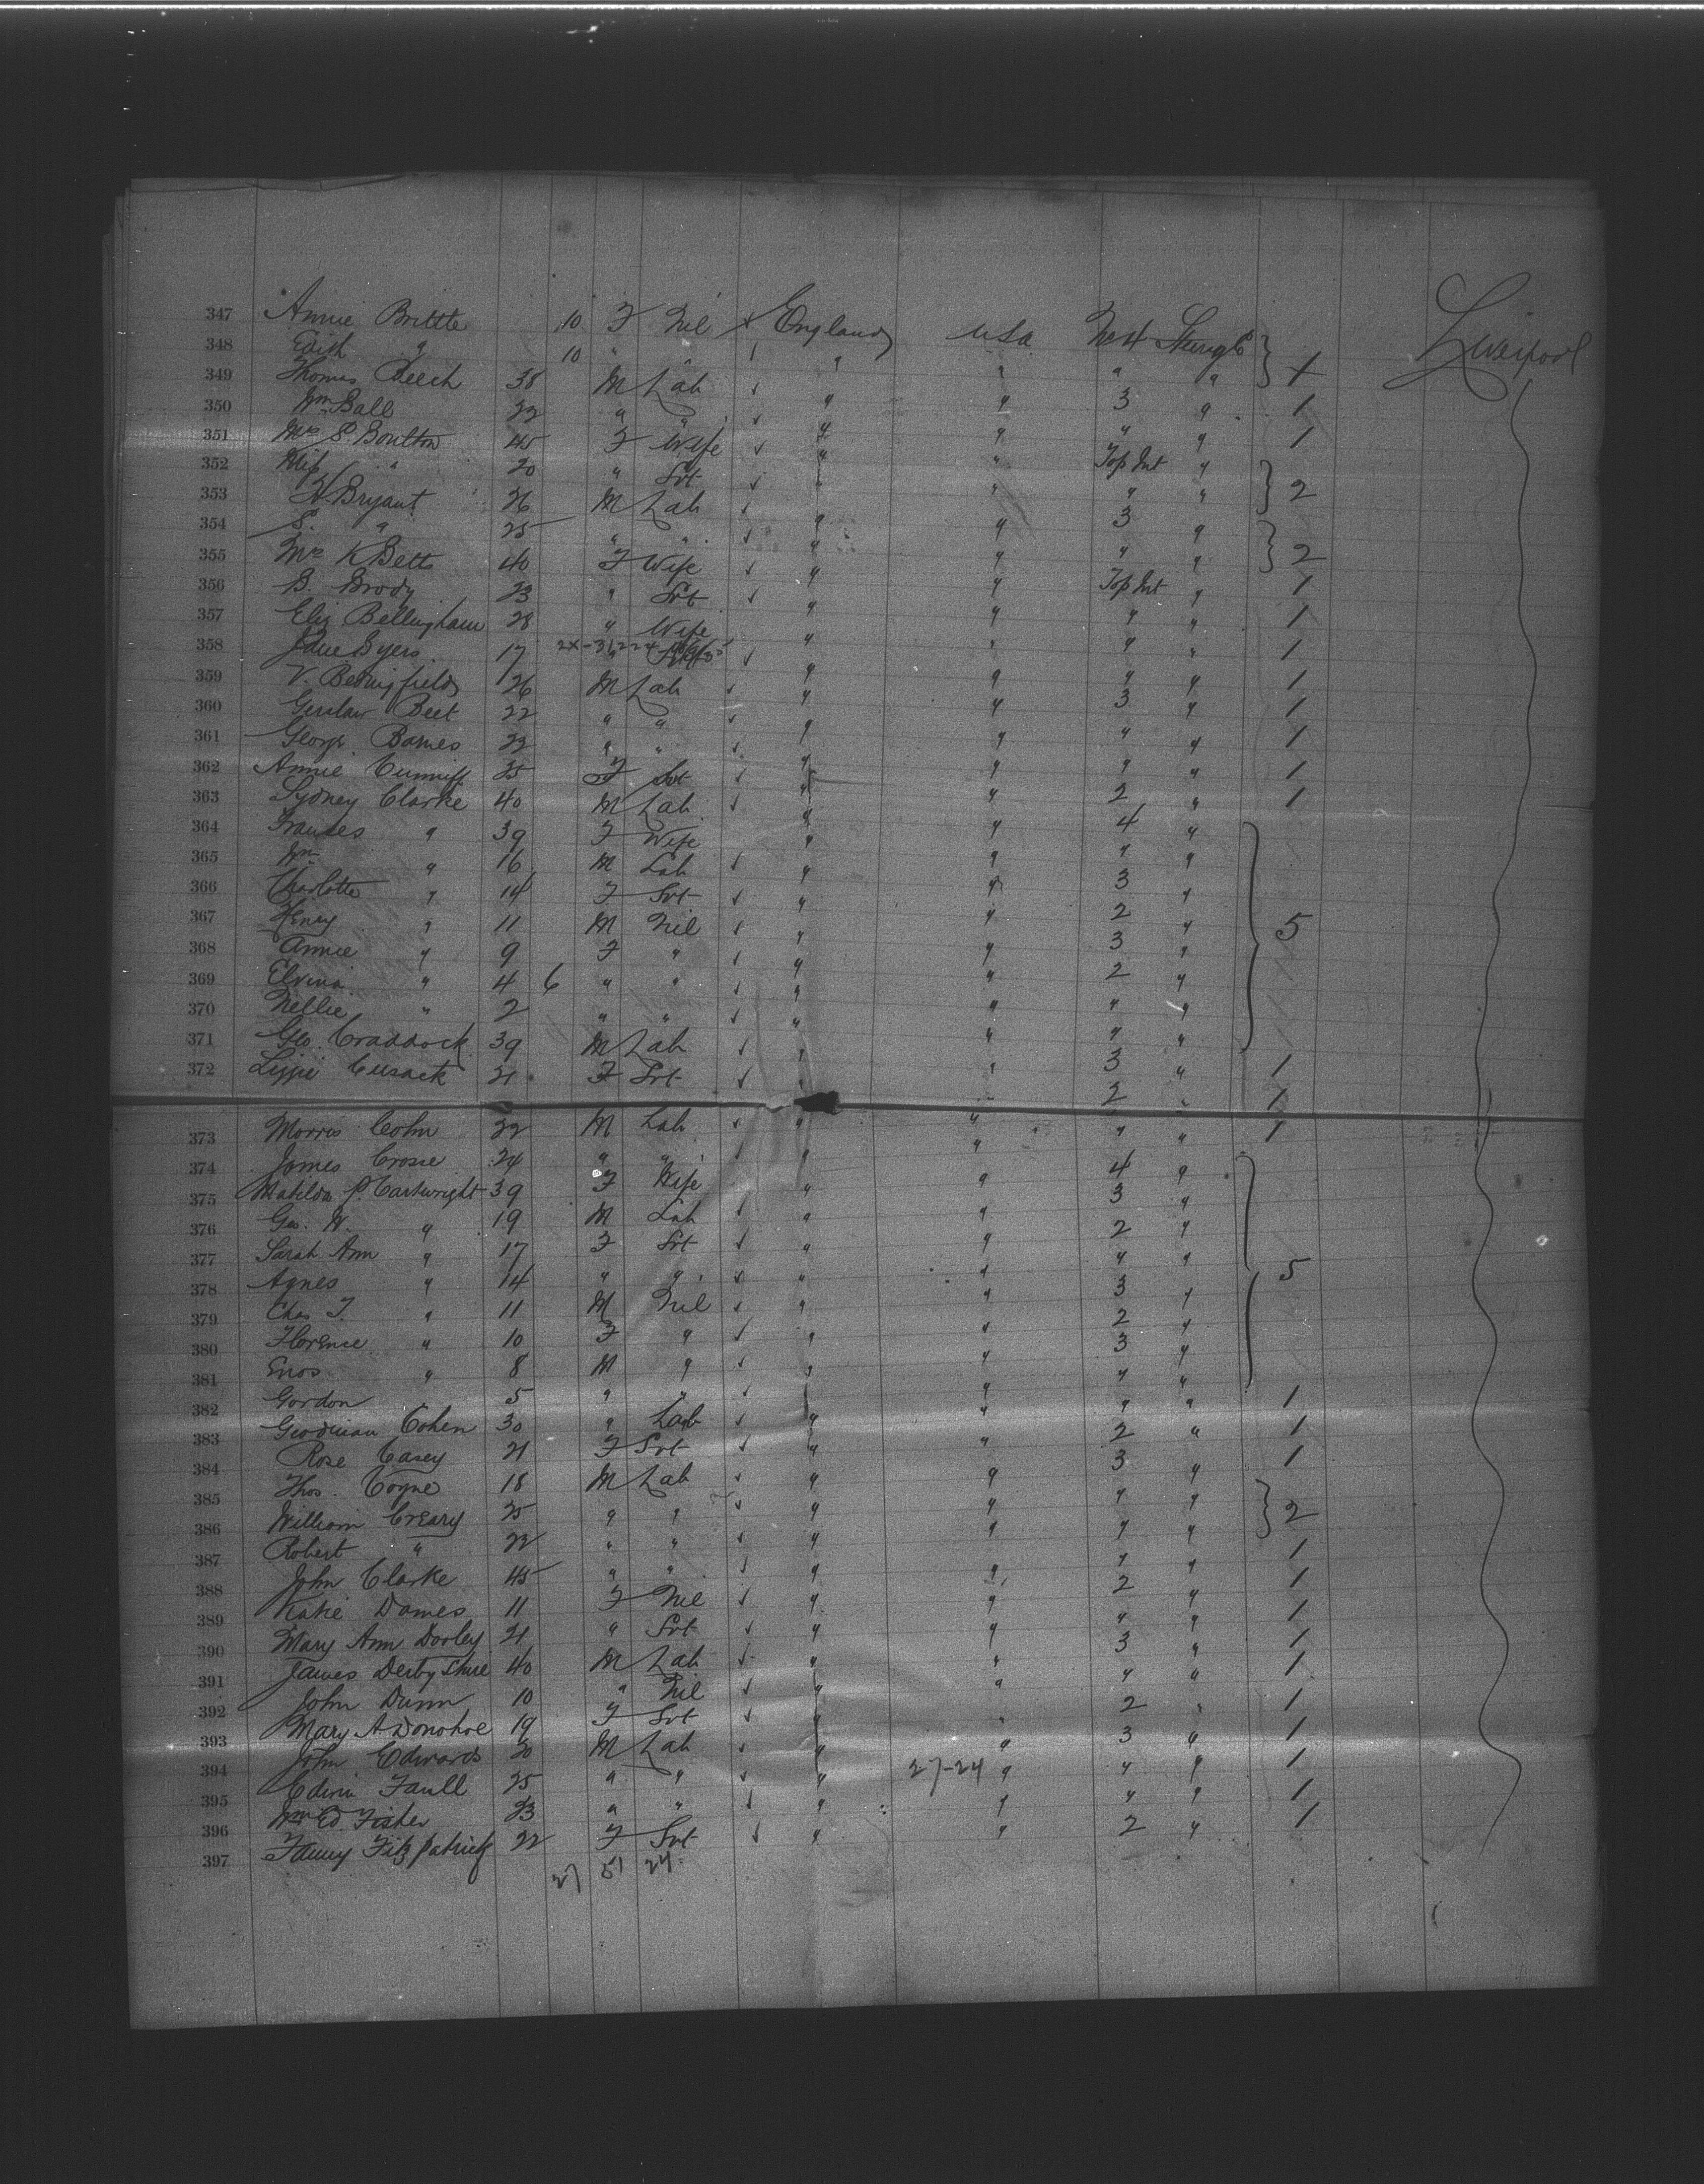 347 Annie Brittle 10 F Nil England USA No 4 Steerage Liverpool
348 Edith " 10 " " " " " " 1
349 Thomas Beech 38 M Lab " " 3 " 1
350 Wm Ball 22 " " " " " " 1
351 Mrs S Boulton 45 F Wife " " Top Int "
352 Miss " 20 " Srt " " " " 2
353 H Bryant 26 M Lab " " 3 "
354 S. " 25 " " " " " " 2
355 Mrs K Betts 40 F Wife " " Top Int " 1
356 B. Brody 23 " Srt " " " " 1
357 Eliz Bellingham 28 " Wife " " " " 1
358 Byers 17 " " " " " 1
359 V. Bedingfield 26 M Lab " " 3 " 1
360 Beet 22 " " " " " " 1
361 George Barnes 22 " " " " " " 1
362 Annie Cunniff 35 F Srt " " 2 " 1
363 Sydney Clarke 40 M Lab " " 4 "
364 Frances " 39 F Wife " " " "
365 Wm " 16 M Lab " " 3 "
366 Charlotte " 14 F Srt " " 2 "
367 Henry " 11 M Nil " " 3 " 5
368 Annie " 9 F " " " 2 "
369 Elvina " 4 6 " " " " " "
370 Nellie " 2 " " " " " "
371 Geo. Craddock 39 M Lab " " 3 " 1
372 Lizzie Cusack 21 F Srt " " 2 " 1
373 Morris Cohn 22 M Lab " " " " 1
374 James Crosse 24 " " " " 4 "
375 Matilda P. Cartwright 39 F Wife " " 3 "
376 Geo. W. " 19 M Lab " " 2 "
377 Sarah Ann " 17 F Srt " " " "
378 Agnes " 14 " " " " 3 " 5
379 Chas T. " 11 M Nil " " 2 "
380 Florence " 10 F " " " 3 "
381 Enos " 8 M " " " " "
382 Gordon 5 " " " " " " 1
383 Goodman Cohen 30 " Lab " " 2 " 1
384 Rose Casey 21 F Srt " " 3 " 1
385 Thos. Coyne 18 M Lab " " " "
386 William Creary 25 " " " " " " 2
387 Robert " 22 " " " " " " 1
388 John Clarke 45 " " " " 2 " 1
389 Katie Dames 11 F Nil " " " " 1
390 Mary Ann Dooley 21 " Srt " " 3 " 1
391 James Derbyshire 40 M Lab " " " " 1
392 John Dunn 10 " Nil " " 2 " 1
393 Mary A Donohoe 19 F Srt " " 3 " 1
394 John Edwards 20 M Lab " 27-24 " " " 1
395 Edwin Faull 25 " " " " " " 1
396 Wm Ed. Fisher 23 " " " " 2 " 1
397 Fanny Fitzpatrick 22 F Srt "
27 51 24